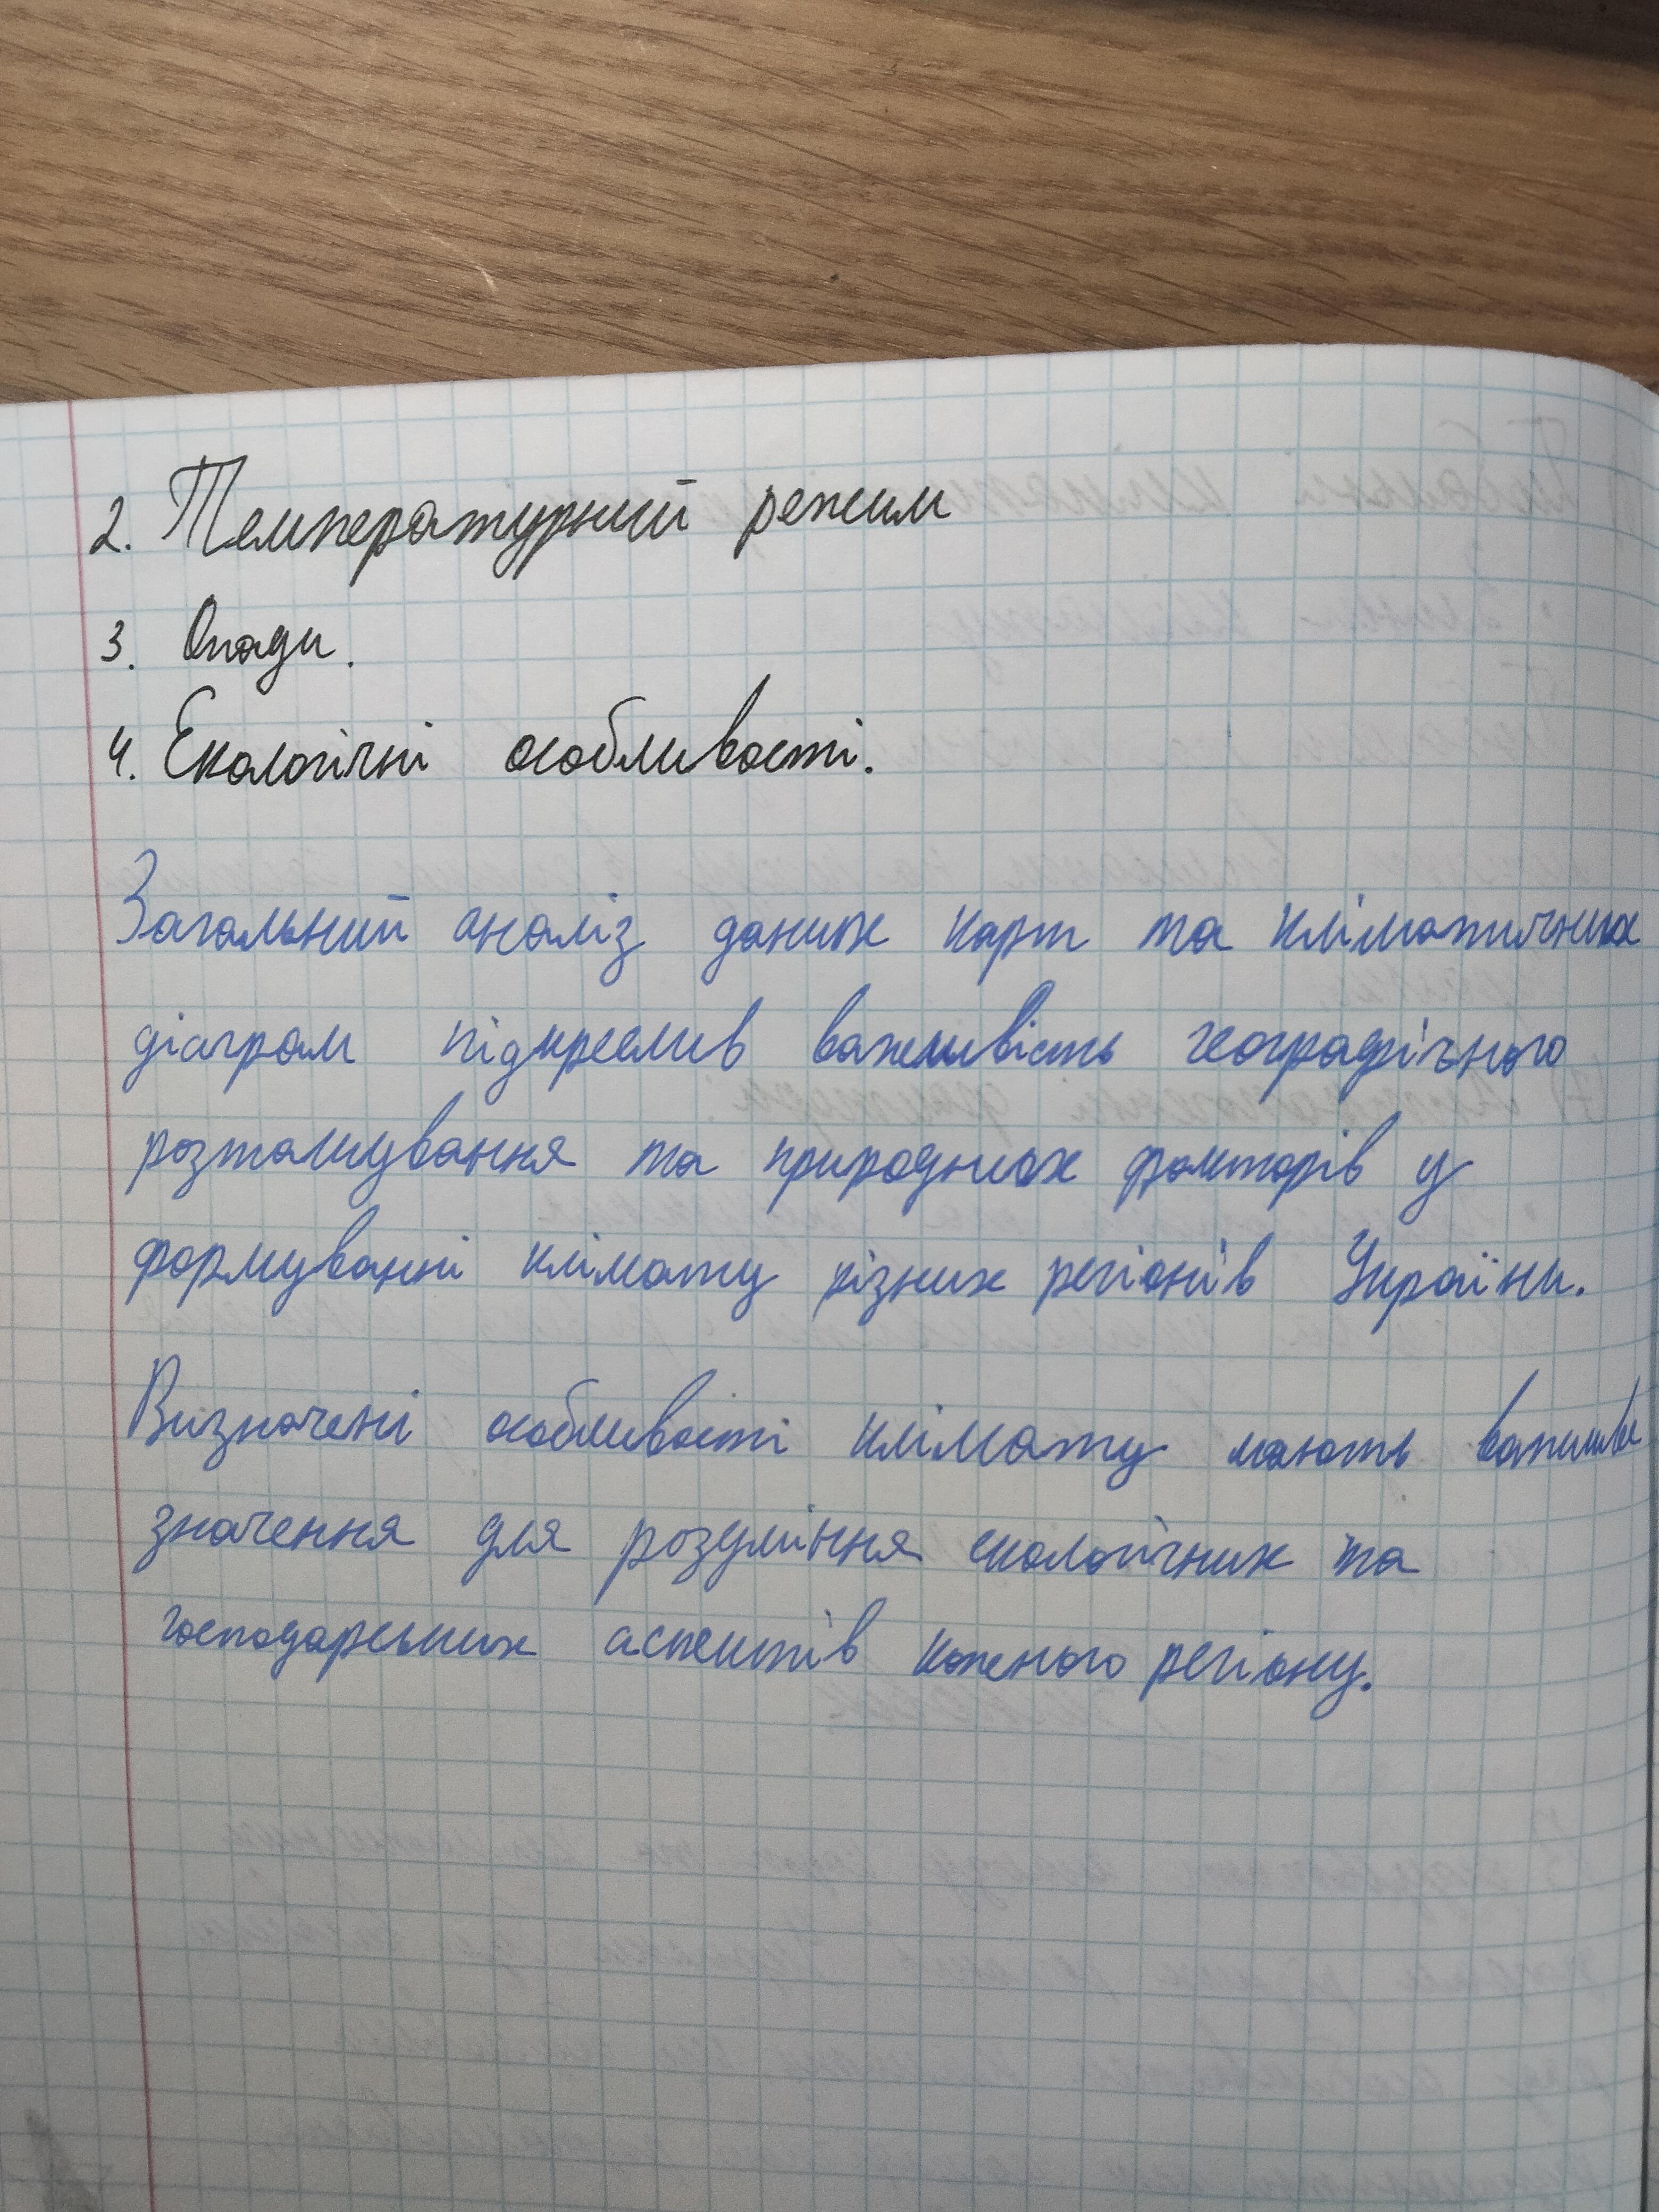 2. Температурний режим
3. Опади.
4. Екологічні особливості.
Загальний аналіз даних карт та кліматичних
діаграм підкреслив важливість географічного
розташування та природних факторів у
формуванні клімату різних регіонів України.
Визначені особливості клімату мають важливе
значення для розуміння екологічних та
господарських аспектів кожного регіону.